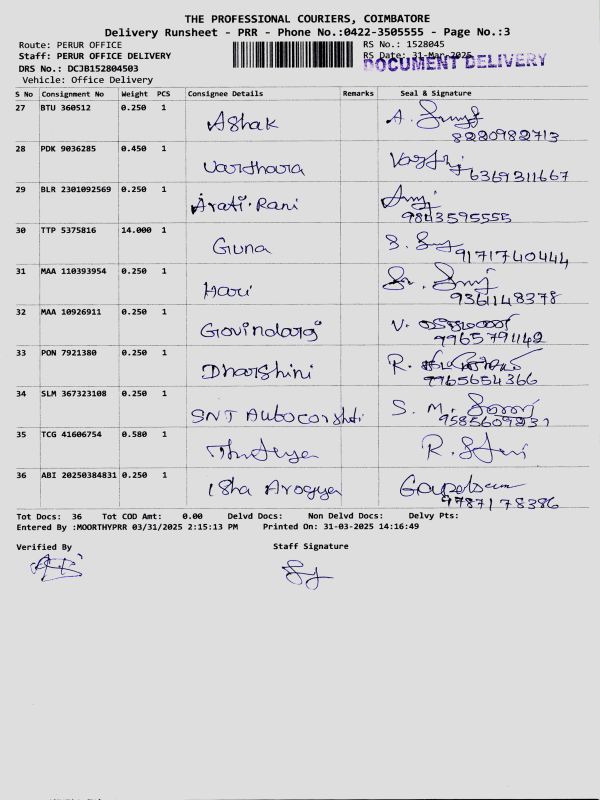 THE PROFESSIONAL COURIERS, COIMBATORE
Delivery Runsheet - PRR - Phone No.:0422-3505555 - Page No.:3
Route: PERUR OFFICE RS No.: 1528045
Staff: PERUR OFFICE DELIVERY RS Date: 31-Mar-2025
DOCUMENT DELIVERY
DRS No.: DCJB152804503
Vehicle: Office Delivery
S No Consignment No Weight PCS Consignee Details Remarks Seal & Signature
27 BTU 360512 0.250 1 Ashak A.
8220982713
28 PDK 9036285 0.450 1 Vardhara
6369311667
29 BLR 2301092569 0.250 1 Arati. Rani
9843595555
30 TTP 5375816 14.000 1 Guna S.
9171740444
31 MAA 110393954 0.250 1 Hari
9361148378
32 MAA 10926911 0.250 1 Govindaraj V.
9965791142
33 PON 7921380 0.250 1 Dharshini R.
7765654366
34 SLM 367323108 0.250 1 SNT S. M.
9585609231
35 TCG 41606754 0.580 1 R.
36 ABI 20250384831 0.250 1 Isha Arogya
9787178386
Tot Docs: 36 Tot COD Amt: 0.00 Delvd Docs: Non Delvd Docs: Delvy Pts:
Entered By :MOORTHYPRR 03/31/2025 2:15:13 PM Printed On: 31-03-2025 14:16:49
Verified By Staff Signature